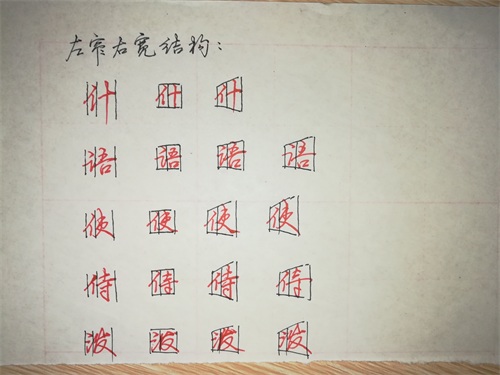 左窄右宽结构：
什 什 什
语 语 语 语
使 使 使 使
侍 侍 侍 侍
波 波 波 波